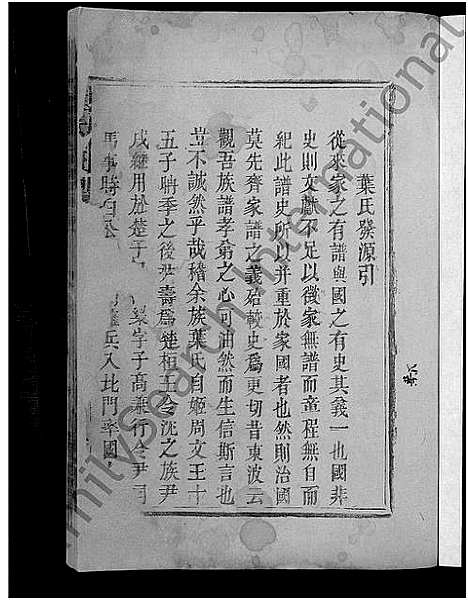 葉氏發源引
從來家之有譜與國之有史其義一也國非
史則文獻不足以徵家無譜而章程無自而
紀此譜史所以并重於家國者也然則治國
莫先齊家譜之義始較史爲更切昔東波云
觀吾族譜孝弟之心可油然而生信斯言也
豈不誠然乎哉稽余族葉氏自姬周文王十
五子聃季之後尹壽爲楚相王令沈之族尹
戌繼用於楚于 梁字子高兼行令尹司
馬事時白公 兵入北門率國
FamilySearch International